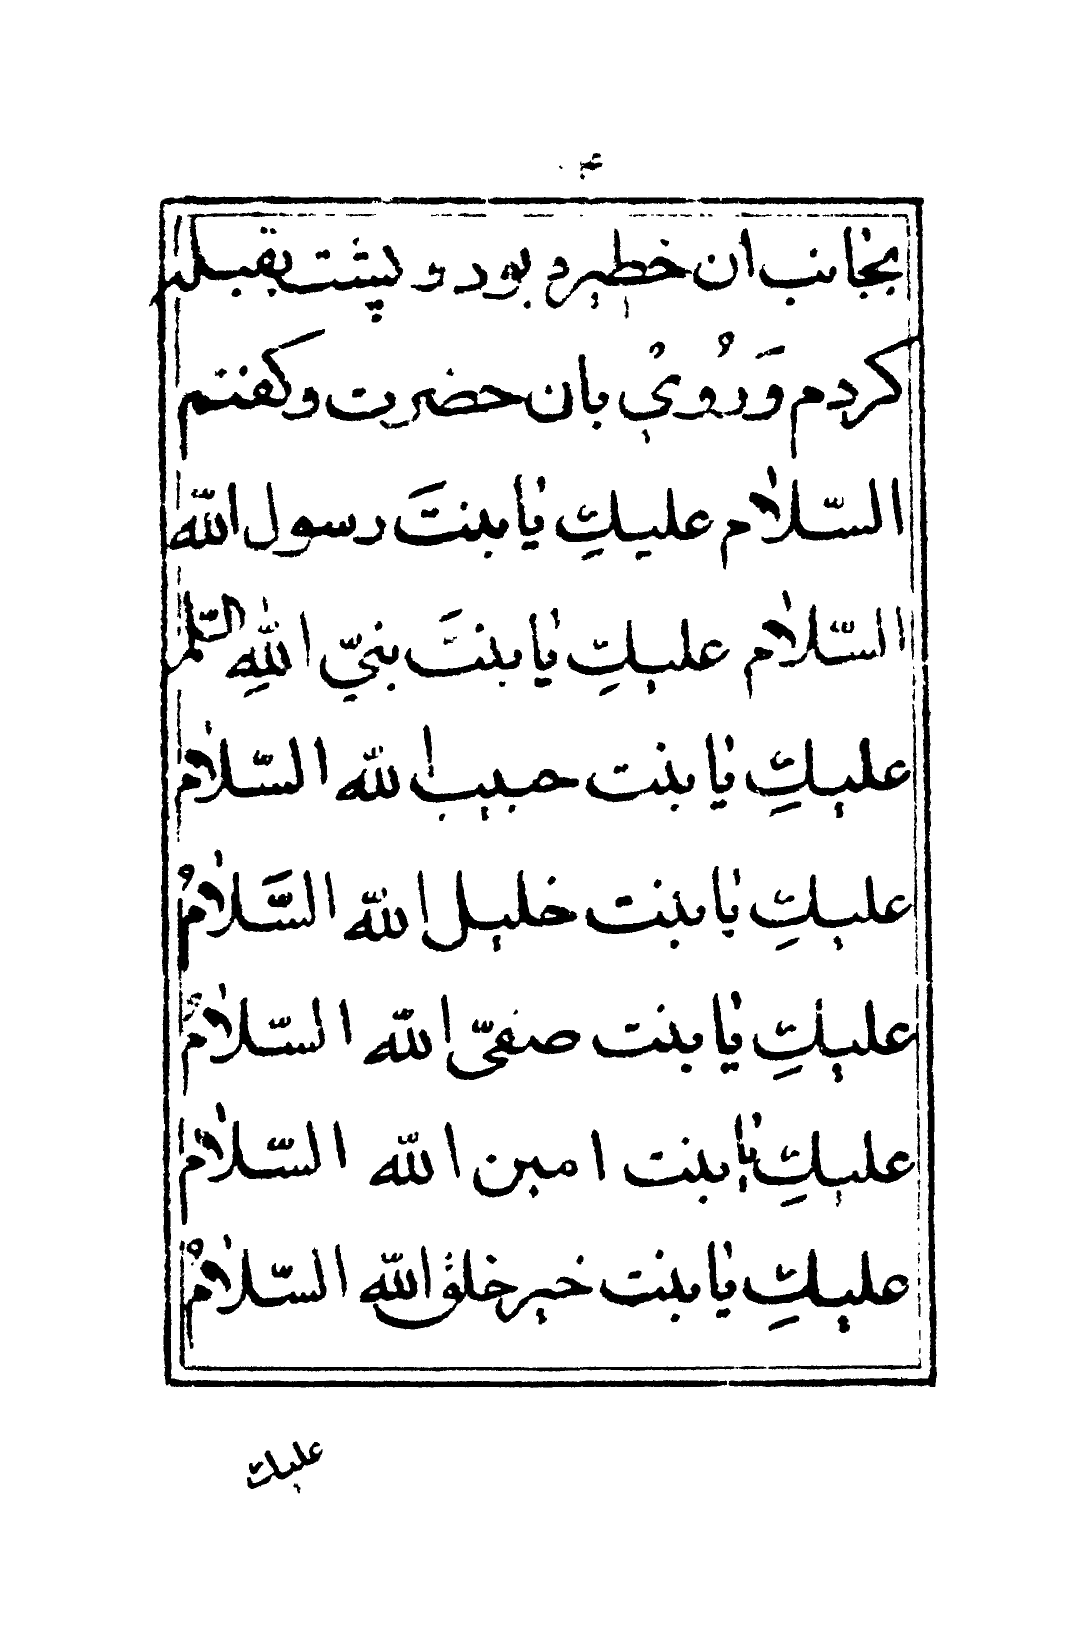 بجانب ان خطیره بود و پشت بقبله
کردم وَرُویْ بان حضرت و کفتم
السّلاٰم علیکِ یٰا بنتَ رسول اللّه
السّلاٰم علیکِ یٰا بنتَ نبیّ اللّٰهِ السّلٰم
علیکِ یٰا بنت حبیب اللّٰه السّلاٰم
علیکِ یٰا بنت خلیل اللّٰه السَّلاٰمُ
علیكِ یٰا بنت صفیّ اللّٰه السّلاٰمُ
علیكِ یٰا بنت امین اللّٰه السّلاٰم
علیكِ یٰا بنت خیر خلق اللّٰه السّلاٰمُ
علیك